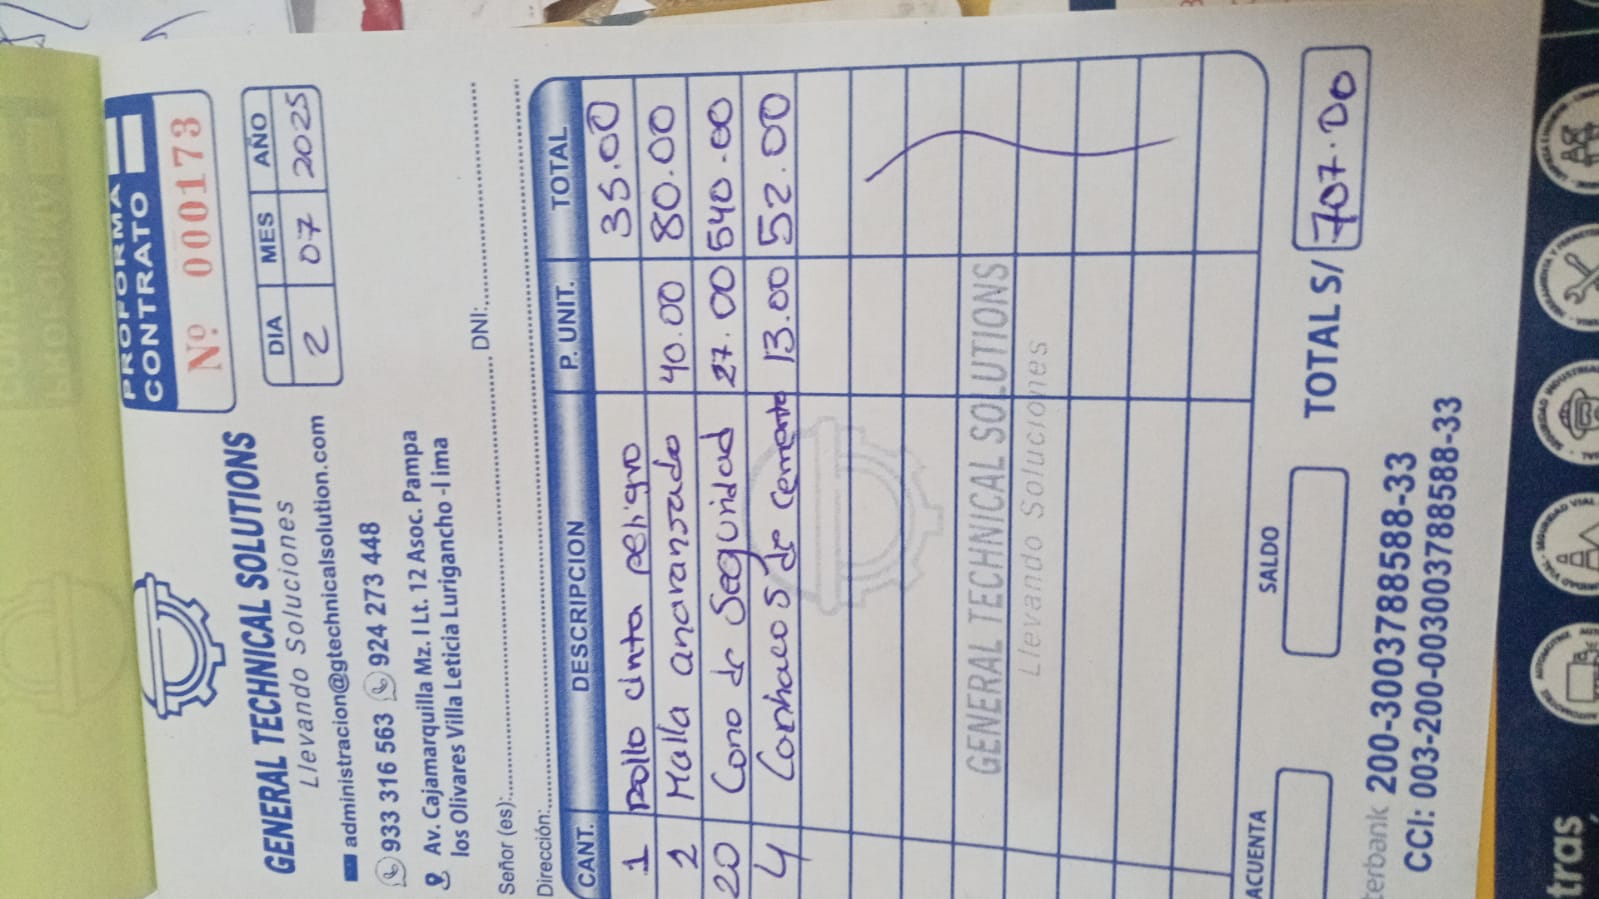 PROFORMA
CONTRATO
Nº 000173
DIA MES AÑO
2 07 2025
GENERAL TECHNICAL SOLUTIONS
Llevando Soluciones
administracion@gtechnicalsolution.com
933 316 563 924 273 448
Av. Cajamarquilla Mz. I Lt. 12 Asoc. Pampa
los Olivares Villa Leticia Lurigancho -lima
Señor (es): DNI:
Dirección:
CANT. DESCRIPCION P. UNIT. TOTAL
1 rollo cinta peligro 35.00
2 Malla anaranjado 40.00 80.00
20 Cono de Seguridad 27.00 540.00
4 de cemento 13.00 52.00
GENERAL TECHNICAL SOLUTIONS
Llevando Soluciones
ACUENTA SALDO TOTAL S/ 707.00
terbank 200-3003788588-33
CCI: 003-200-003003788588-33
tras